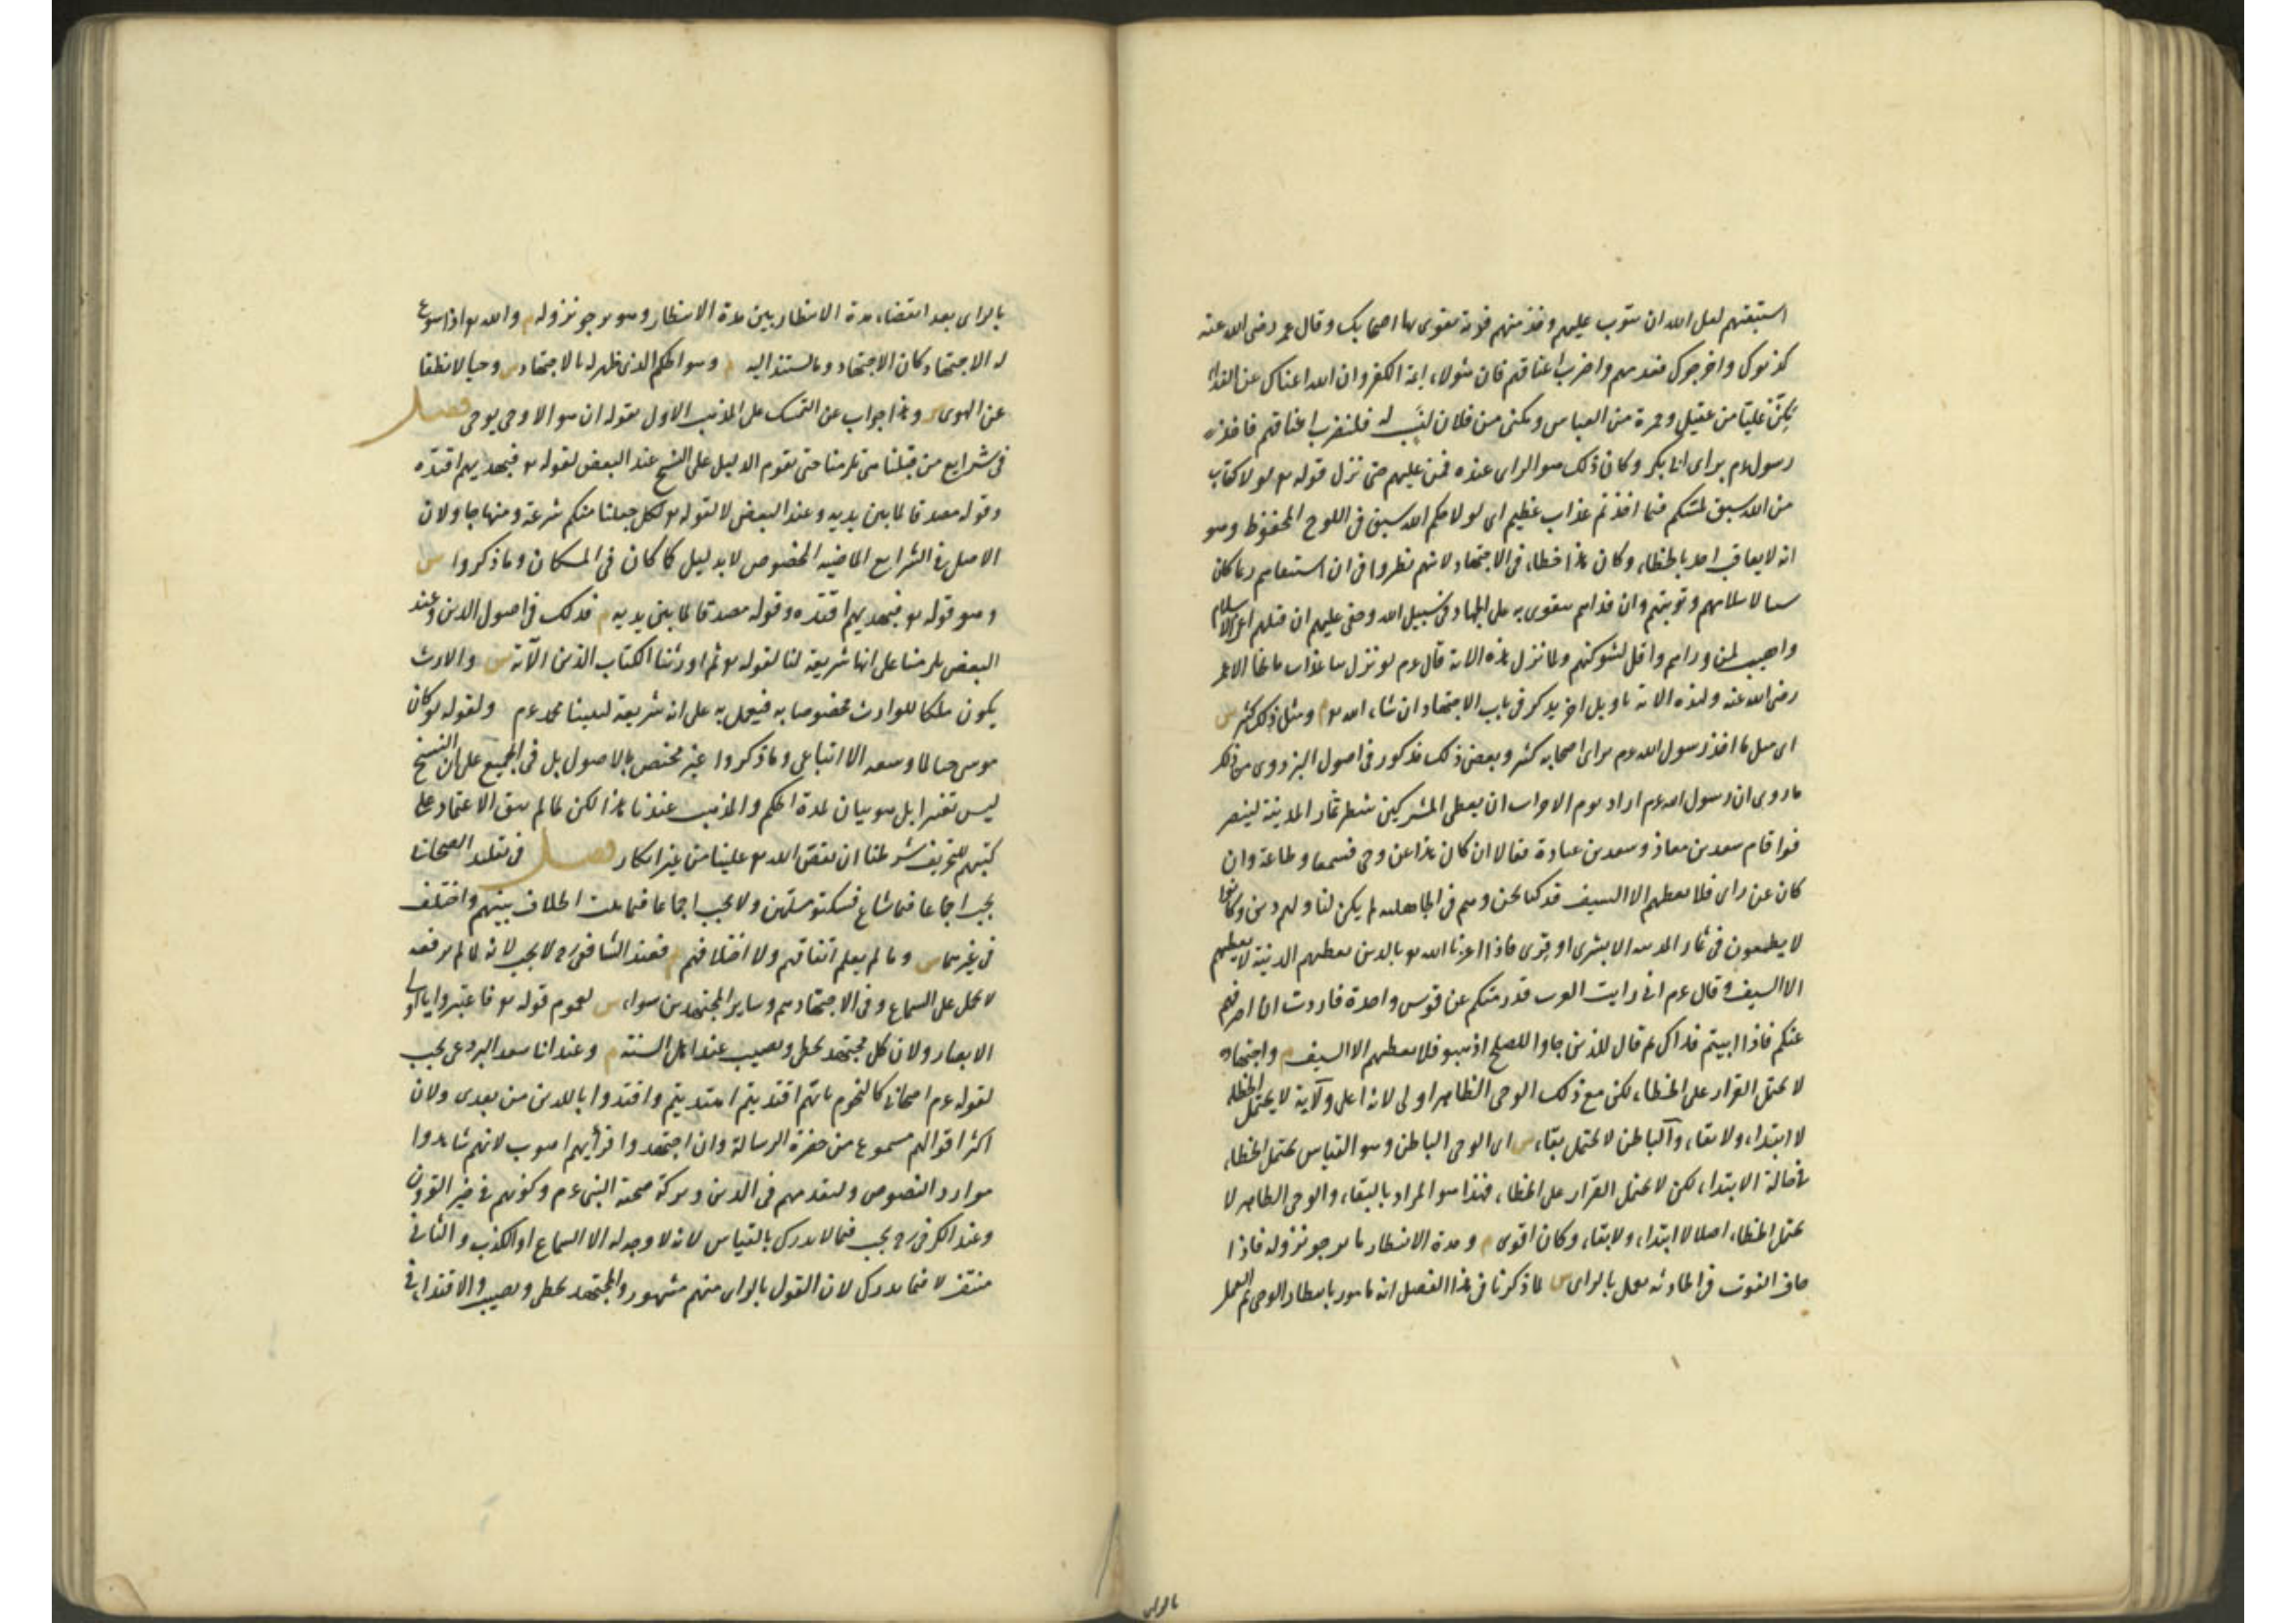 استبقهم لعل الله ان يتوب عليهم وخذ منهم فدية يتقوى بها اصحابك وقال عمر رضى الله عنه
كذبوك واخرجوك فقدمهم واضرب اعناقهم فان هؤلاء ائمة الكفر وان الله اغناك عن الفداء
مكّن عليّا من عقيل وحمزة من العباس ومكنى من فلان لنسيب له فلنضرب اعناقهم فاخذ
رسول عم براى ابى بكر وكان ذلك هو الراى عنده فمن عليهم حتى نزل قوله تع لولا كتاب
من الله سبق لمسكم فيما اخذتم عذاب عظيم اى لولا حكم الله سبق فى اللوح المحفوظ وهو
انه لا يعاقب احد بالخطاء وكان هذا خطاء فى الاجتهاد لانهم نظروا فى ان استبقاءهم ربما كان
سببا لاسلامهم وتوبتهم وان فداءهم يتقوى به على الجهاد فى سبيل الله وخفى عليهم ان قتلهم اعز للاسلام
واهيب لمن وراءهم واقل لشوكتهم ولما نزل هذه الاية قال عم لو نزل بنا عذاب ما نجا الا عمر
رضى الله عنه ولهذه الاية تاويل اخر يذكر فى باب الاجتهاد ان شاء الله تع م ومثل ذلك كثير ش
اى مثل ما اخذ رسول الله عم براى اصحابه كثير وبعض ذلك مذكور فى اصول البزدوى من ذلك
ما روى ان رسول الله عم اراد يوم الاحزاب ان يعطى المشركين شطر ثمار المدينة لينصر
فوا قام سعد بن معاذ وسعد بن عبادة فقالا ان كان هذا عن وحى فسمعا وطاعة وان
كان عن راى فلا نعطيهم الا السيف قد كنا نحن وهم فى الجاهلية لم يكن لنا ولهم دين وكانوا
لا يطمعون فى ثمار المدينة الا بشرى او قرى فاذا اعزنا الله تع بالدين نعطيهم الدنية لا نعطيهم
الا السيف وقال عم انى رايت العرب قد رمتكم عن قوس واحدة فاردت ان اصرفهم
عنكم فاذا ابيتم فذاك ثم قال للذين جاوا للصلح اذهبوا فلا نعطيهم الا السيف م واجتهاده
لا يحتمل القرار على الخطاء لكن مع ذلك الوحى الظاهر اولى لانه اعلى ولانه لا يحتمل الخطاء
لا ابتداء ولا بقاء والباطن لا يحتمل بقاء ش اى الوحى الباطن وهو القياس يحتمل الخطاء
فى حالة الابتداء لكن لا يحتمل القرار على الخطاء فهذا هو المراد بالبقاء والوحى الظاهر لا
يحتمل الخطاء اصلا لا ابتداء ولا بقاء وكان اقوى م ومدة الانتظار ما يرجو نزوله فاذا
خاف الفوت فى الحادثة يعمل بالراى ش لما ذكرنا فى هذا الفصل انه مامور بانتظار الوحى ثم العمل
بالراى
بالراى بعد انقضاء مدة الانتظار بين مدة الانتظار وهو ما يرجو نزوله م والله تع اذا سوغ
له الاجتهاد كان الاجتهاد وما يستند اليه ش وهو الحكم الذى ظهر له بالاجتهاد م وحيا لا نطقا
عن الهوى ش وهذا جواب عن التمسك على المذهب الاول بقوله ان هو الا وحى يوحى فصل
فى شرايع من قبلنا هى تلزمنا حتى يقوم الدليل على النسخ عند البعض لقوله تع فبهديهم اقتده
وقوله مصدقا لما بين يديه وعند البعض لا لقوله تع لكل جعلنا منكم شرعة ومنهاجا ولان
الاصل فى الشرايع الماضية الخصوص الا بدليل كما كان فى المكان وما ذكروا ش
وهو قوله تع فبهديهم اقتده وقوله مصدقا لما بين يديه م فذلك فى اصول الدين وعند
البعض تلزمنا على انها شريعة لنا لقوله تع ثم اورثنا الكتاب الذين الآية ش والارث
يكون ملكا للوارث مخصوصا به فيعمل به على انه شريعة لنبينا محمد عم ولقوله لو كان
موسى حيا لما وسعه الا اتباعى وما ذكروا غير مختص بالاصول بل فى الجميع على ان النسخ
ليس تغييرا بل هو بيان لمدة الحكم والمذهب عندنا هذا لكن لما لم يبق الاعتماد على
كتبهم للتحريف شرطنا ان يقص الله تع علينا من غير انكار فصل فى تقليد الصحابى
يجب اجماعا فيما شاع فسكتوا مسلمين ولا يجب اجماعا فيما ثبت الخلاف بينهم واختلف
فى غيرهما ش وما لم يعلم اتفاقهم ولا اختلافهم م فعند الشافعى رح لا يجب لانه لما لم يرفعه
لا يحمل على السماع وفى الاجتهاد هم وساير المجتهدين سواء ش لعموم قوله تع فاعتبروا يا اولى
الابصار ولان كل مجتهد يخطى ويصيب عند اهل السنة م وعند ابى سعيد البردعى يجب
لقوله عم اصحابى كالنجوم بايهم اقتديتم اهتديتم واقتدوا بالذين من بعدى ولان
اكثر اقوالهم مسموع من حضرة الرسالة وان اجتهدوا فرأيهم اصوب لانهم شاهدوا
موارد النصوص ولتقدمهم فى الدين وبركة صحبة النبى عم وكونهم فى خير القرون
وعند الكرخى رح يجب فيما لا يدرك بالقياس لانه لا وجه له الا السماع او الكذب والثانى
منتف لا فيما يدرك لان القول بالراى منهم مشهور والمجتهد يخطى ويصيب والاقتداء فى